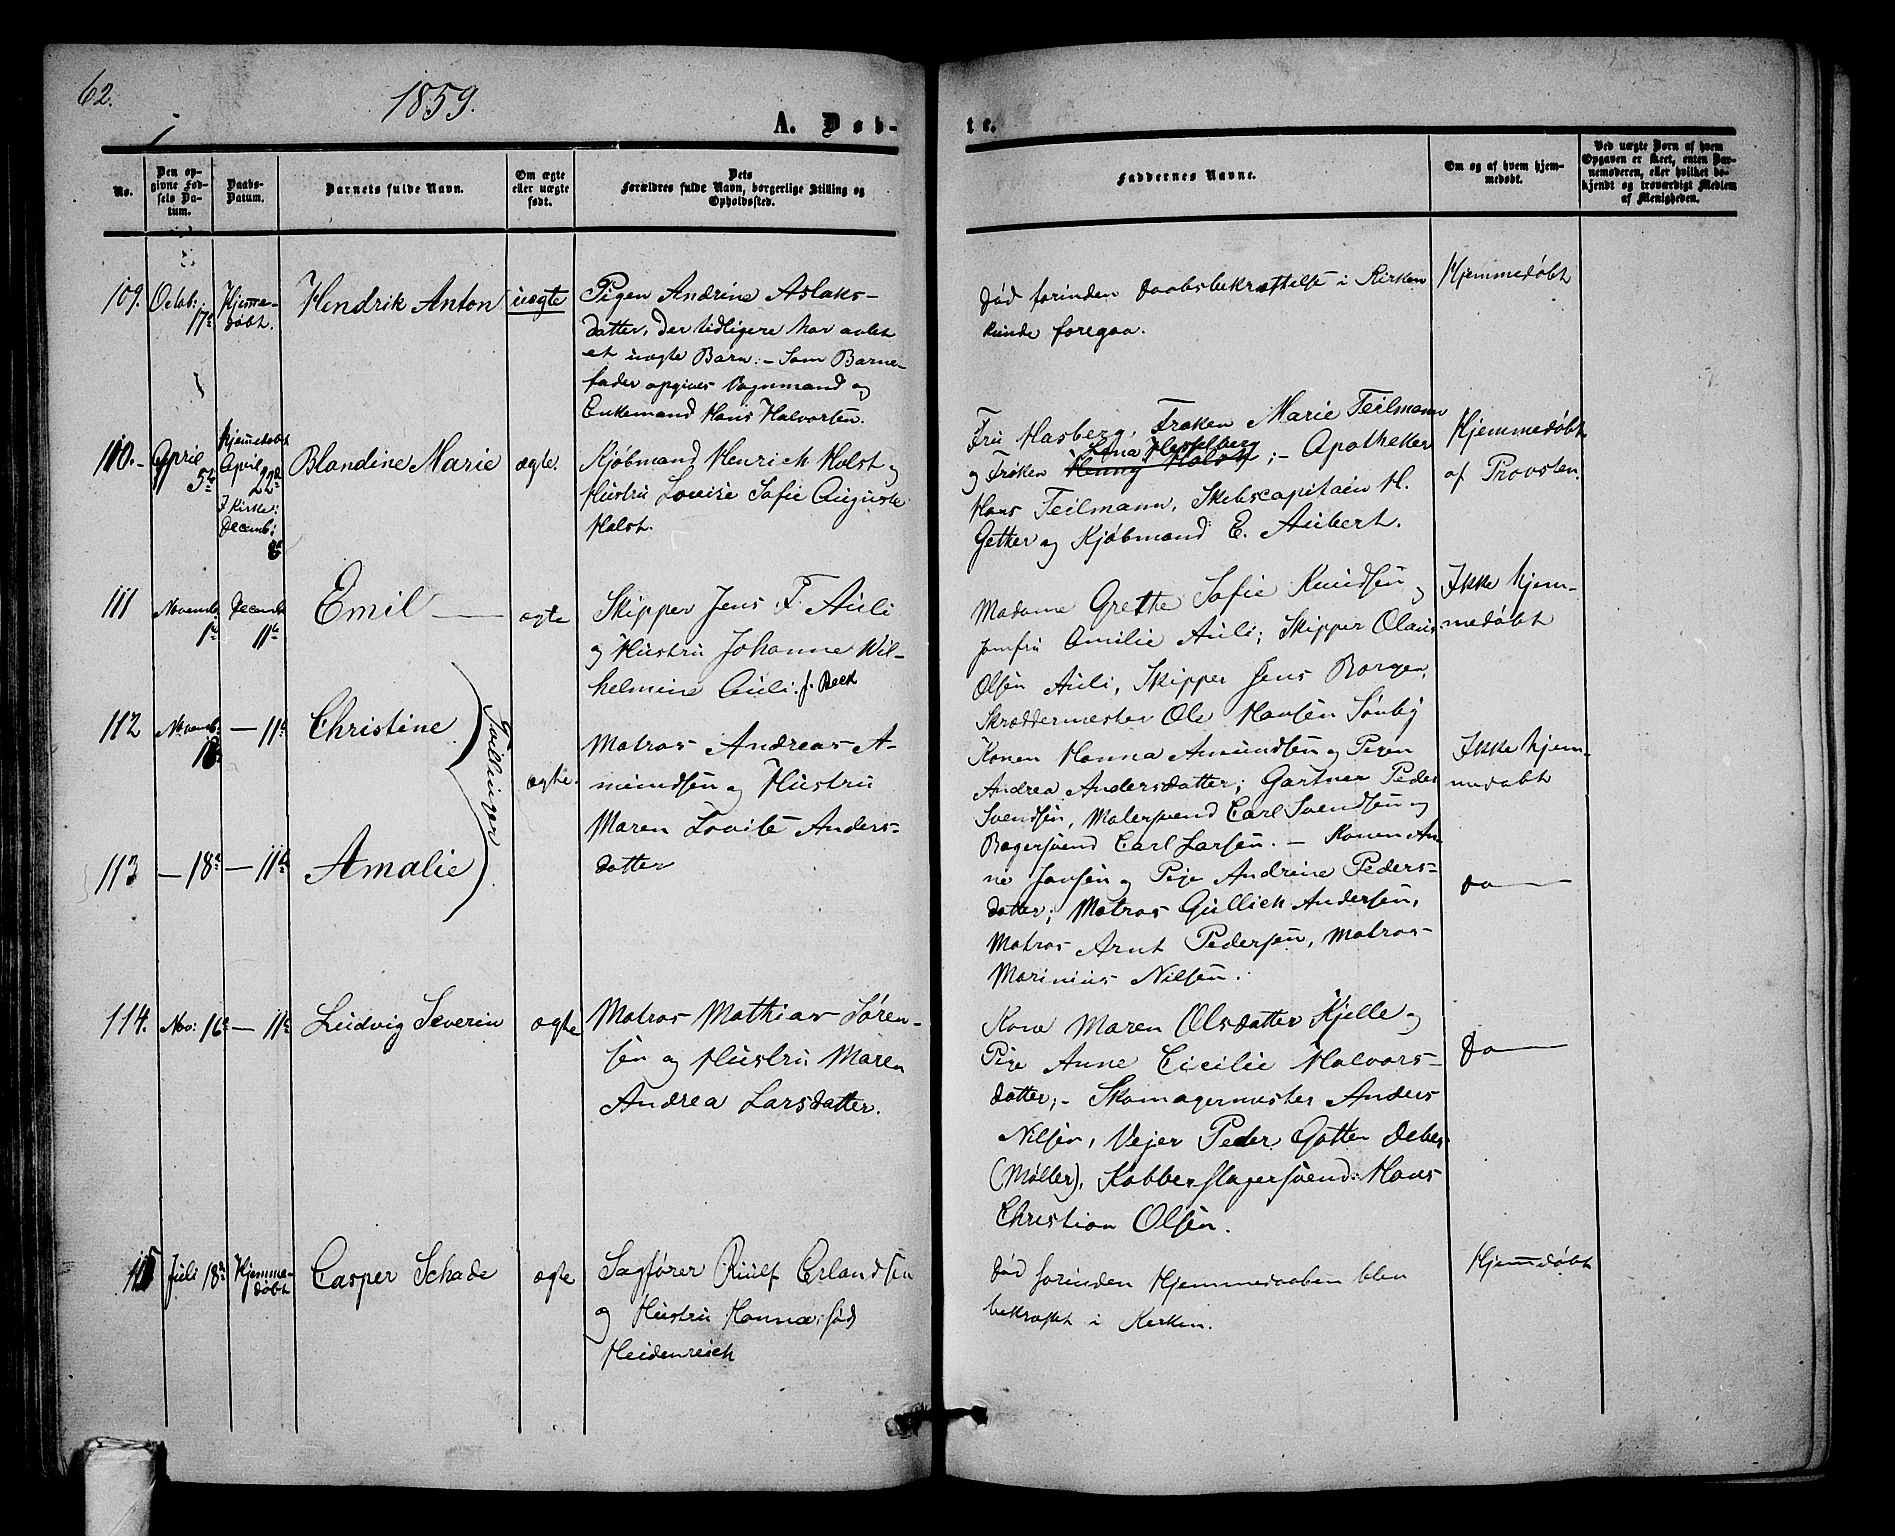 62.
1859.
A. Døb-
te.
No.
Den op-
givne Fød-
sels Da-
tum.
Daabs-
Datum.
Barnets fulde Navn.
Om ægte
eller uægte
født.
Dets
Forældres fulde Navn, borgerlige Stilling og
Opholdssted.
Faddernes Navne.
Om og af hvem hjem-
medøbt.
Ved uægte Børn af hvem
Opgaven er skeet, enten Bar-
nemoderen, eller hvilket be-
kjendt og troværdigt Medlem
af Menigheden.
109.
Octob:
17de
Hjemme-
døbt.
Hendrik Anton
uægte
Pigen Andrine Aslaks-
datter, der tidligere har avlet
et uægte Barn: – Som Barne-
fader opgives Vognmand og
Enkemand Hans Halvorsen.
død forinden Daabsbekræftelse i Kirken
kunde foregaa.
Hjemmedøbt
110.-
April
5te
hjemmedøbt
April
22de
I Kirke:
Decemb:
8de
Blandine Marie
ægte.
Kjøbmand Henrich Holst og
Hustru Lovise Sofie Auguste
Holst.
Fru Hasberg, Frøken Marie Teilmann
og Frøken Henny Holst Lena Hesselberg ;– Apotheker
Hans Teilmann, Skibscapitain H.
Getker og Kjøbmand E. Aubert.
Hjemmedøbt
af Provsten.
111
Novemb:
1ste
Decemb:
11te
Emil
ægte
Skipper Jens F. Auli
og Hustru Johanne Wil-
helmine Auli. f. Beck
Madame Grethe Sofie Knudsen og
Jomfru Amilie Auli; Skipper Olaus
Olsen Auli, Skipper Jens Borgen,
Skræddermester Ole Hansen Sønby
Ikke hjem-
medøbt
112
Novemb:
18de
— 11te
Christine
Tvillinger
ægte.
Matros Andreas A-
mundsen og Hustru
Maren Lovise Anders-
datter
Konen Hanna Amundsen og Pigen
Andrea Andersdatter; Gartner Peder
Svendsen, Malersvend Carl Svendsen og
Bagersvend Carl Larsen. – Konen An-
ne Jansen og Pige Andrine Peders-
datter; Matros Gullich Andersen,
Matros Arnt Pedersen, Matros
Marinius Nilsen.
Ikke hjem-
medøbt
113
— 18de
— 11te
Amalie
do —
114.
Nov: 16de
— 11te
Ludvig Severin
ægte
Matros Mathias Søren-
sen og Hustru Maren
Andrea Larsdatter.
Kone Maren Olsdatter Kjelle og
Pige Anne Cicilie Halvors-
datter;– Skomagermester Anders
Nilsen, Vejer Peder Gotten Deber
(Møller), Kobberslagersvend: Hans
Christian Olsen.
do —
115
Juli 18de
Hjemme-
døbt
Casper Schade
ægte
Sagfører Riulf Erlandsen
og Hustru Hanna, født
Heidenreich
død forinden Hjemmedaaben blev
bekræftet i Kirken.
Hjemmedøbt